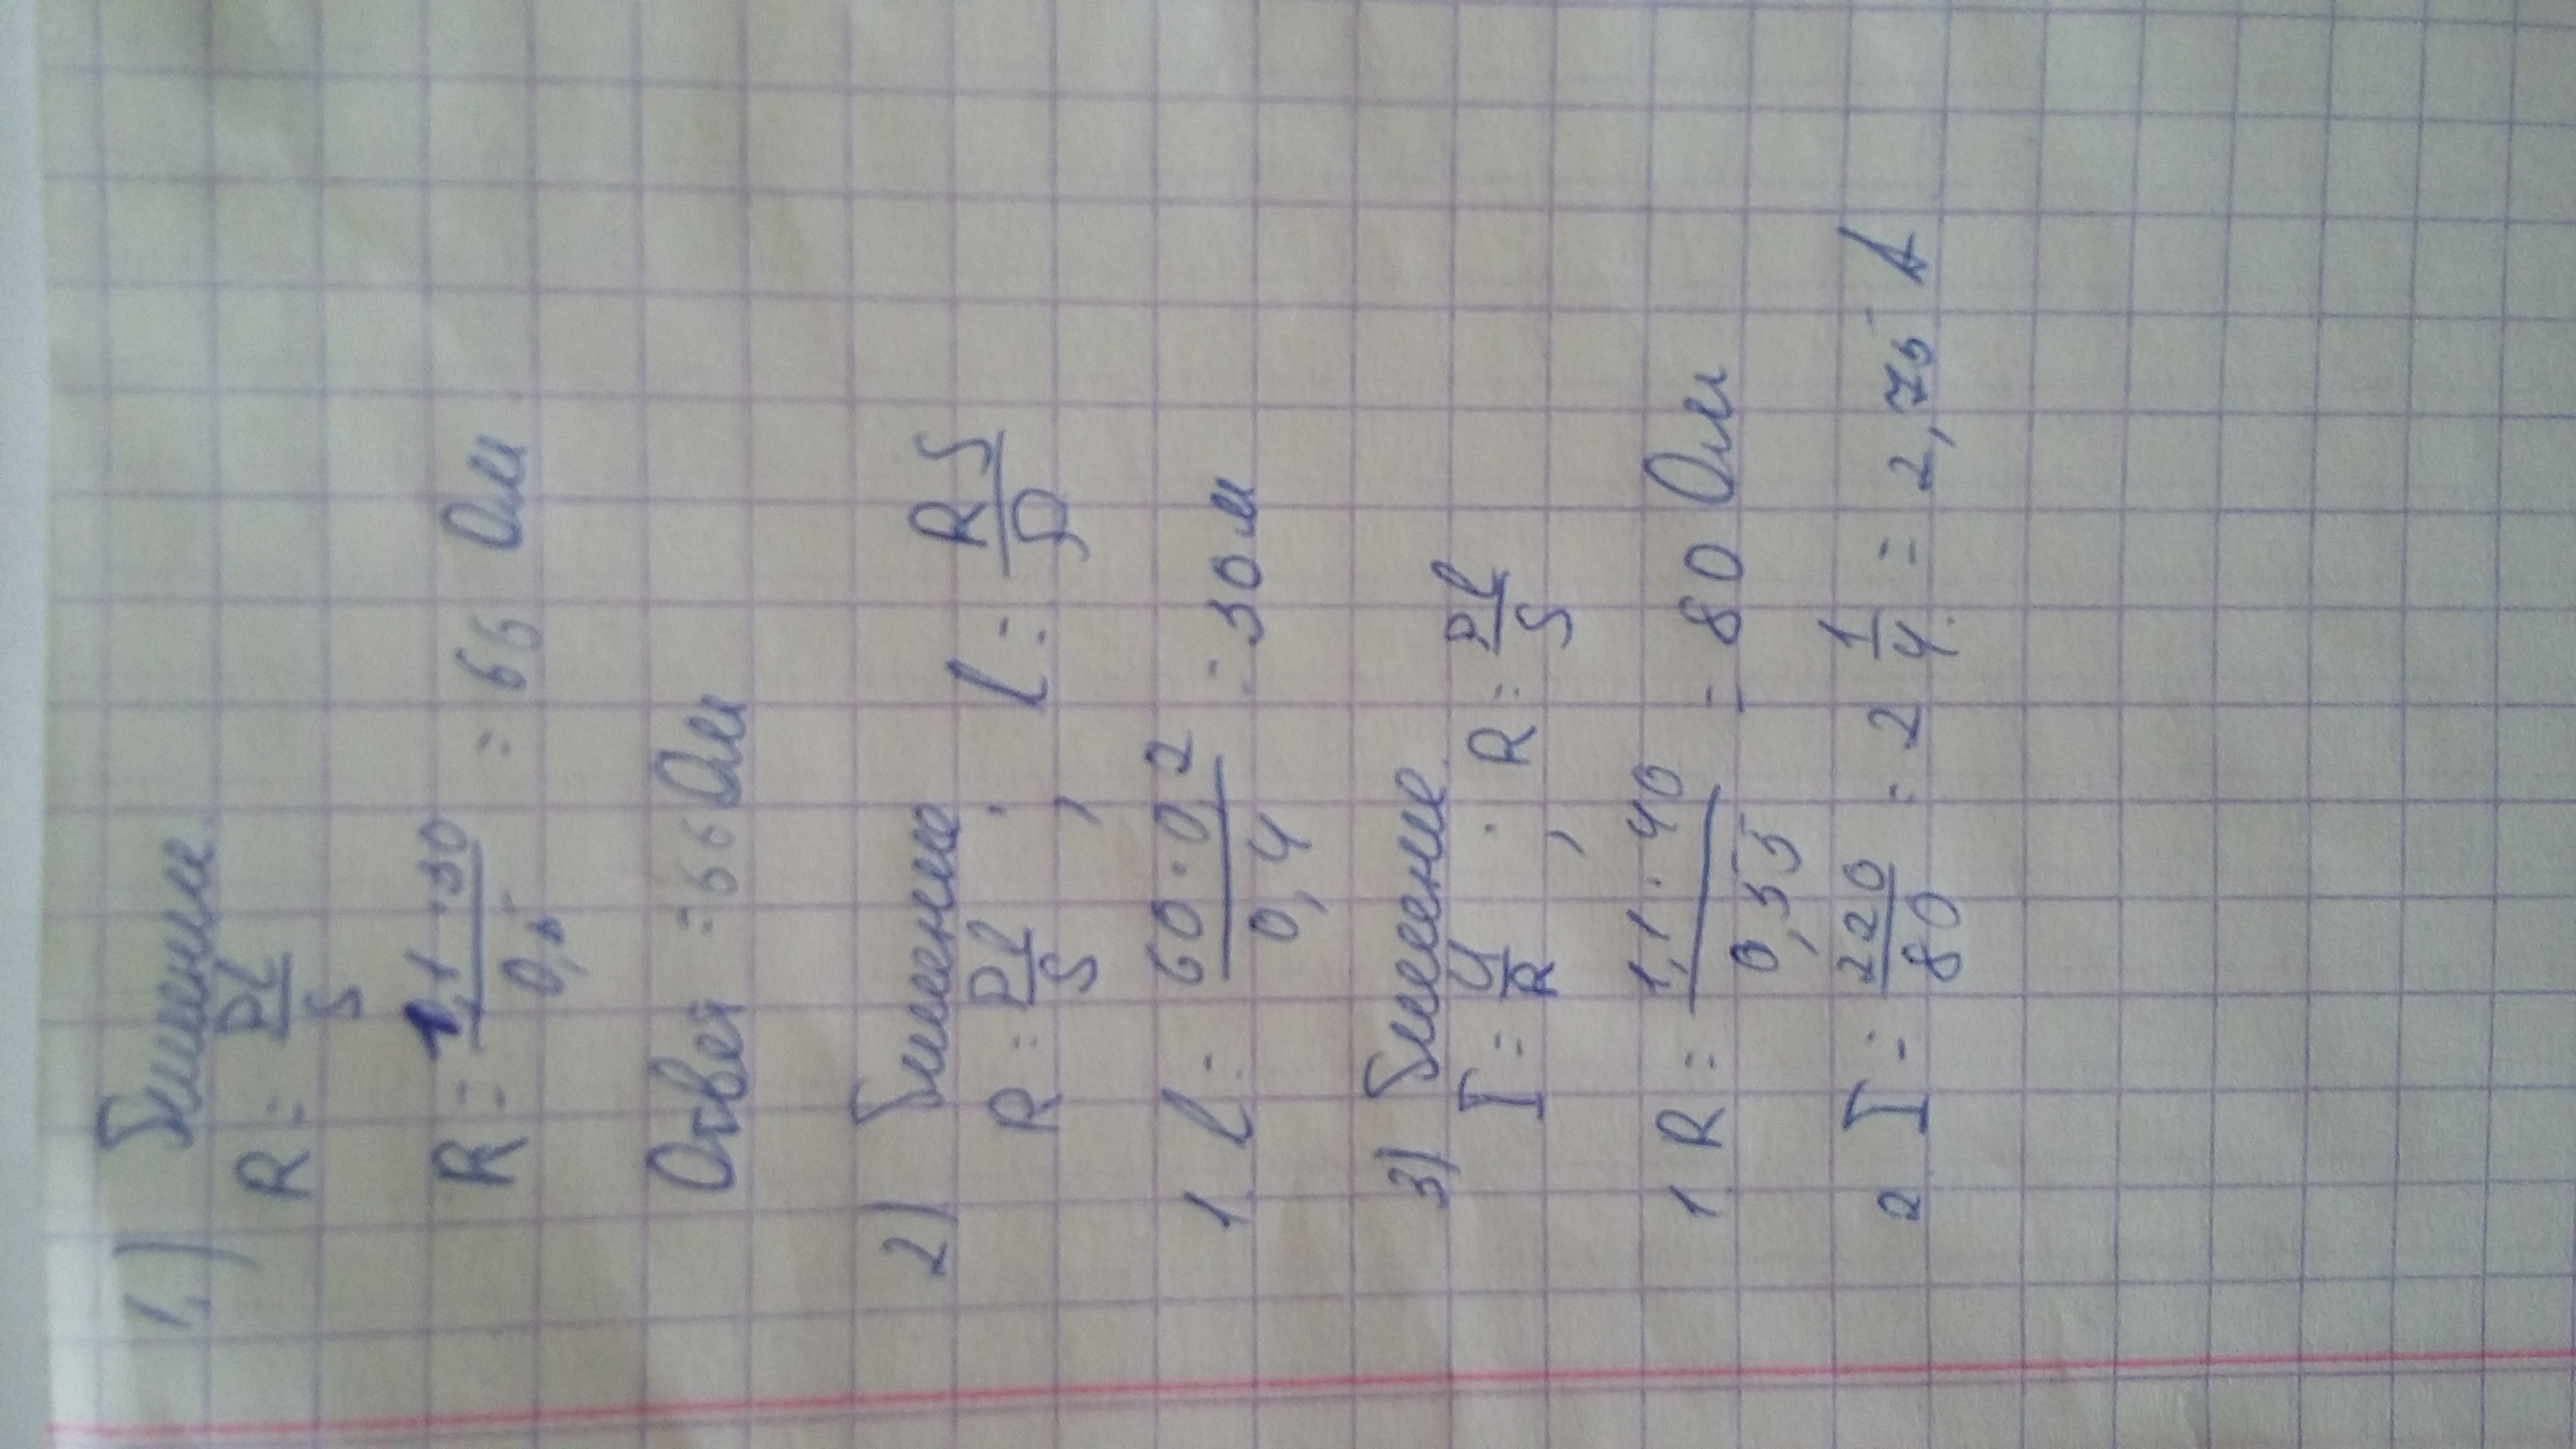 1.) Решение.
R = Pl/S
R = 1,1 · 30/0,5 = 66 Ом
Ответ = 66 Ом
2) Решение
R = Pl/S ; l = RS/ρ
1. l = 60 · 0,2/0,4 = 30 м
3) Решение.
I = U/R ; R = Pl/S
1. R = 1,1 · 40/0,55 = 80 Ом
2. I = 220/80 = 2 1/4 = 2,75 А